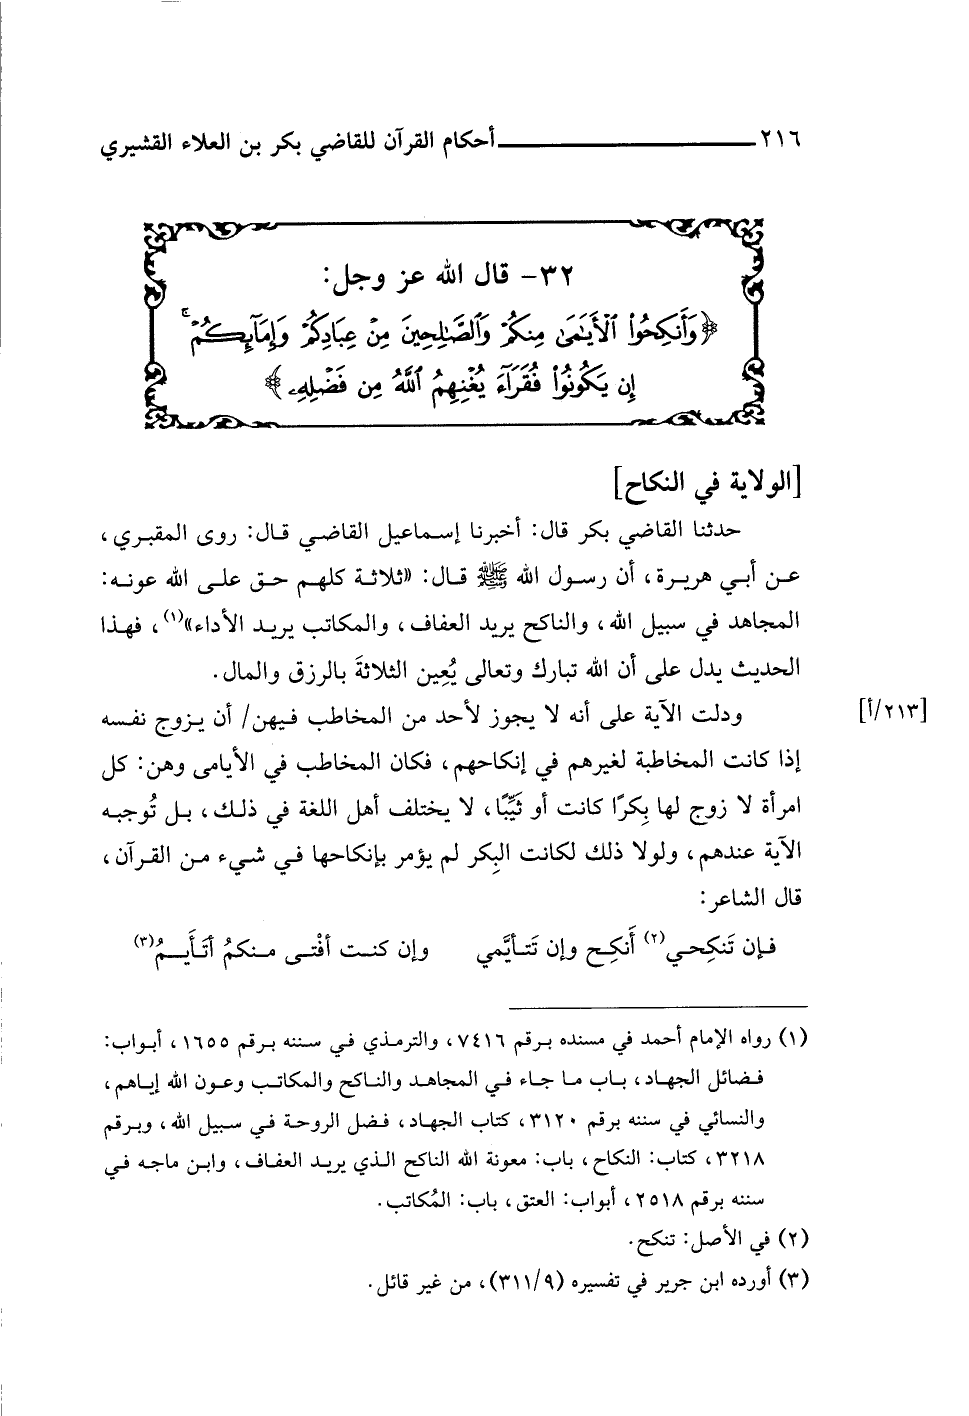 ٢١٦ أحكام القرآن للقاضي بكر بن العلاء القشيري
٣٢- قال الله عز وجل:
﴿وَأَنكِحُوا۟ ٱلْأَيَـٰمَىٰ مِنكُمْ وَٱلصَّـٰلِحِينَ مِنْ عِبَادِكُمْ وَإِمَآئِكُمْ ۚ
إِن يَكُونُوا۟ فُقَرَآءَ يُغْنِهِمُ ٱللَّهُ مِن فَضْلِهِۦ﴾
[الولاية في النكاح]
حدثنا القاضي بكر قال: أخبرنا إسماعيل القاضي قال: روى المقبري،
عن أبي هريرة، أن رسول الله ﷺ قال: «ثلاثة كلهم حق على الله عونه:
المجاهد في سبيل الله، والناكح يريد العفاف، والمكاتب يريد الأداء»(١)، فهذا
الحديث يدل على أن الله تبارك وتعالى يُعِين الثلاثةَ بالرزق والمال.
ودلت الآية على أنه لا يجوز لأحد من المخاطب فيهن/ أن يزوج نفسه [٢١٣/أ]
إذا كانت المخاطبة لغيرهم في إنكاحهم، فكان المخاطب في الأيامى وهن: كل
امرأة لا زوج لها بِكرًا كانت أو ثَيِّبًا، لا يختلف أهل اللغة في ذلك، بل تُوجبه
الآية عندهم، ولولا ذلك لكانت البِكر لم يؤمر بإنكاحها في شيء من القرآن،
قال الشاعر:
فإن تَنكِحي(٢) أَنكِح وإن تَتأيَّمي وإن كنت أفْتى منكمُ أتَأَيمُ(٣)
(١) رواه الإمام أحمد في مسنده برقم ٧٤١٦، والترمذي في سننه برقم ١٦٥٥، أبواب:
فضائل الجهاد، باب ما جاء في المجاهد والناكح والمكاتب وعون الله إياهم،
والنسائي في سننه برقم ٣١٢٠، كتاب الجهاد، فضل الروحة في سبيل الله، وبرقم
٣٢١٨، كتاب: النكاح، باب: معونة الله الناكح الذي يريد العفاف، وابن ماجه في
سننه برقم ٢٥١٨، أبواب: العتق، باب: المُكاتب.
(٢) في الأصل: تنكح.
(٣) أورده ابن جرير في تفسيره (٣١١/٩)، من غير قائل.